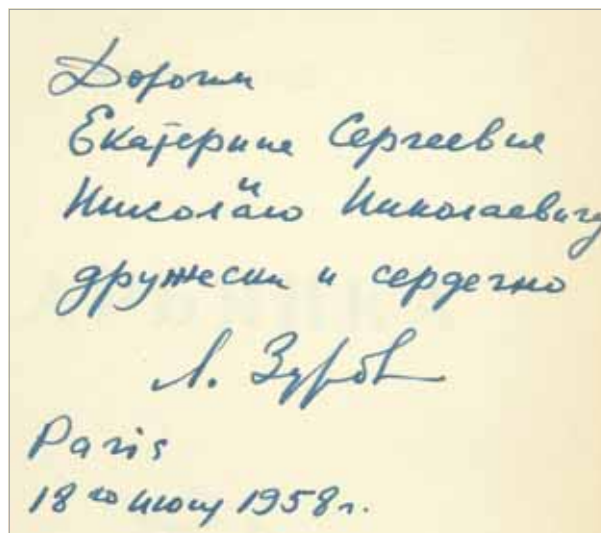 Дорогим
Екатерине Сергеевне
и
Николаю Николаевичу
дружески и сердечно
Л. Зуров
Paris
18го июня 1958 г.